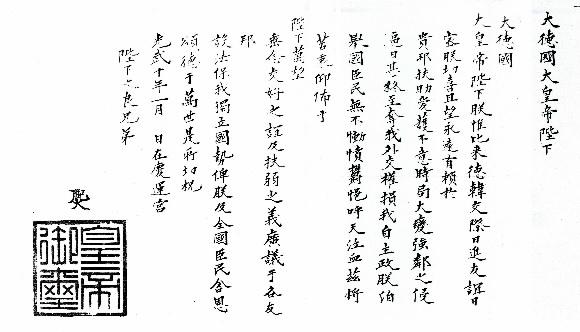 大德國大皇帝陛下
大德國
大皇帝陛下朕惟比来德韓交際日進友誼日
密朕切喜且望永遠有賴於
貴邦扶助愛護不意時局大變強鄰之侵
逼日甚終至奪我外交權損我自主政朕伯
擧國臣民無不慟憤鬱悒呼天泣血茲將
苦衷仰佈于
陛下萬望
垂念交好之誼及扶弱之義廣議于各友
邦
設法保我獨立國勢俾朕及全國臣民含恩
頌德于萬世是所切祝
光武十年一月 日在慶運宮
陛下之良兄弟
皇帝御璽